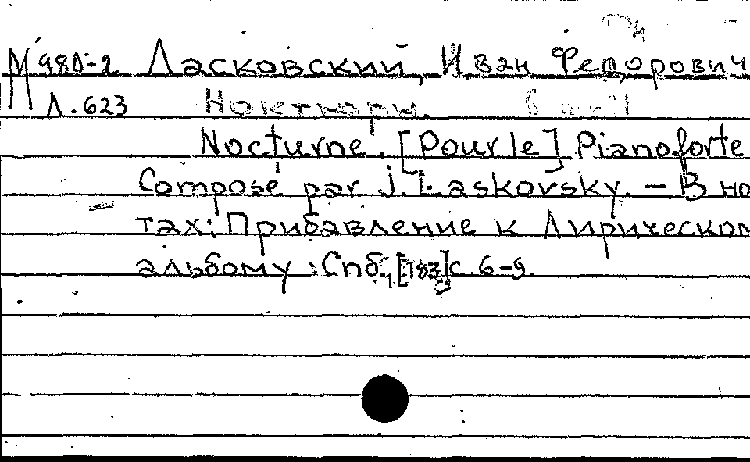 М 980-2 Ласковский, Иван Федорович
Л.623 Ноктюрн.
Nocturne. [Pour le] Pianoforte
Composé par J. Laskovsky. – В но
тах: Прибавление к Лирическом
альбому. Спб., с. 6-9.